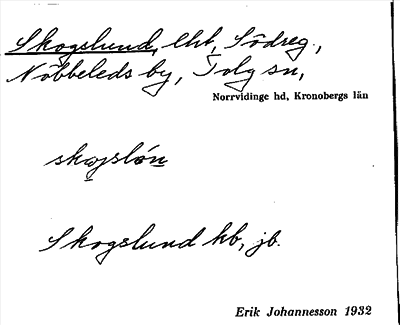 Skogslund, lht, Södreg.,
Nöbbeleds by, Tolg sn,
Norrvidinge hd, Kronobergs län
skojslón
Skogslund hb, jb.
Erik Johannesson 1932